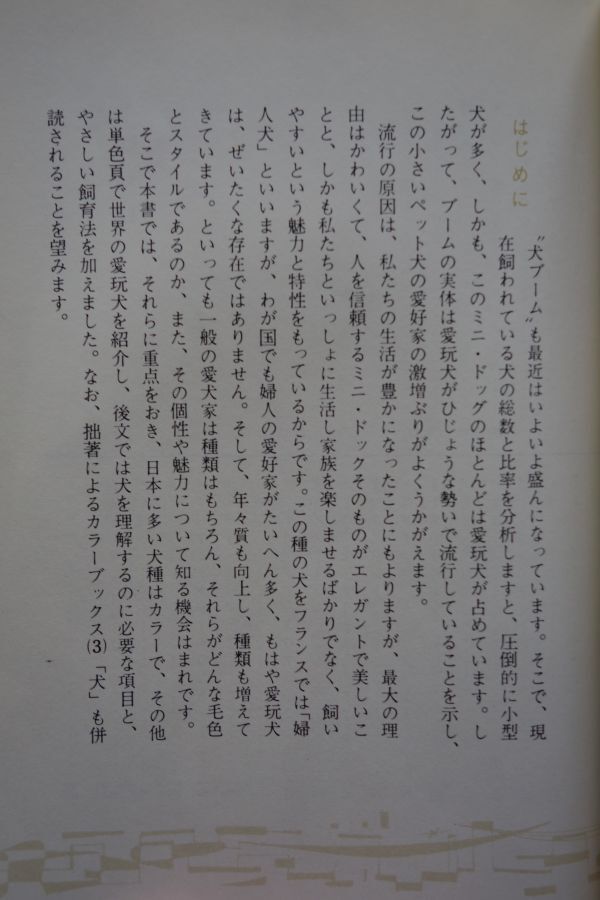 はじめに
〝犬ブーム〟も最近はいよいよ盛んになっています。そこで、現
在飼われている犬の総数と比率を分析しますと、圧倒的に小型
犬が多く、しかも、このミニ・ドッグのほとんどは愛玩犬が占めています。し
たがって、ブームの実体は愛玩犬がひじょうな勢いで流行していることを示し、
この小さいペット犬の愛好家の激増ぶりがよくうかがえます。
流行の原因は、私たちの生活が豊かになったことにもよりますが、最大の理
由はかわいくて、人を信頼するミニ・ドックそのものがエレガントで美しいこ
とと、しかも私たちといっしょに生活し家族を楽しませるばかりでなく、飼い
やすいという魅力と特性をもっているからです。この種の犬をフランスでは「婦
人犬」といいますが、わが国でも婦人の愛好家がたいへん多く、もはや愛玩犬
は、ぜいたくな存在ではありません。そして、年々質も向上し、種類も増えて
きています。といっても一般の愛犬家は種類はもちろん、それらがどんな毛色
とスタイルであるのか、また、その個性や魅力について知る機会はまれです。
そこで本書では、それらに重点をおき、日本に多い犬種はカラーで、その他
は単色頁で世界の愛玩犬を紹介し、後文では犬を理解するのに必要な項目と、
やさしい飼育法を加えました。なお、拙著によるカラーブックス(3)「犬」も併
読されることを望みます。